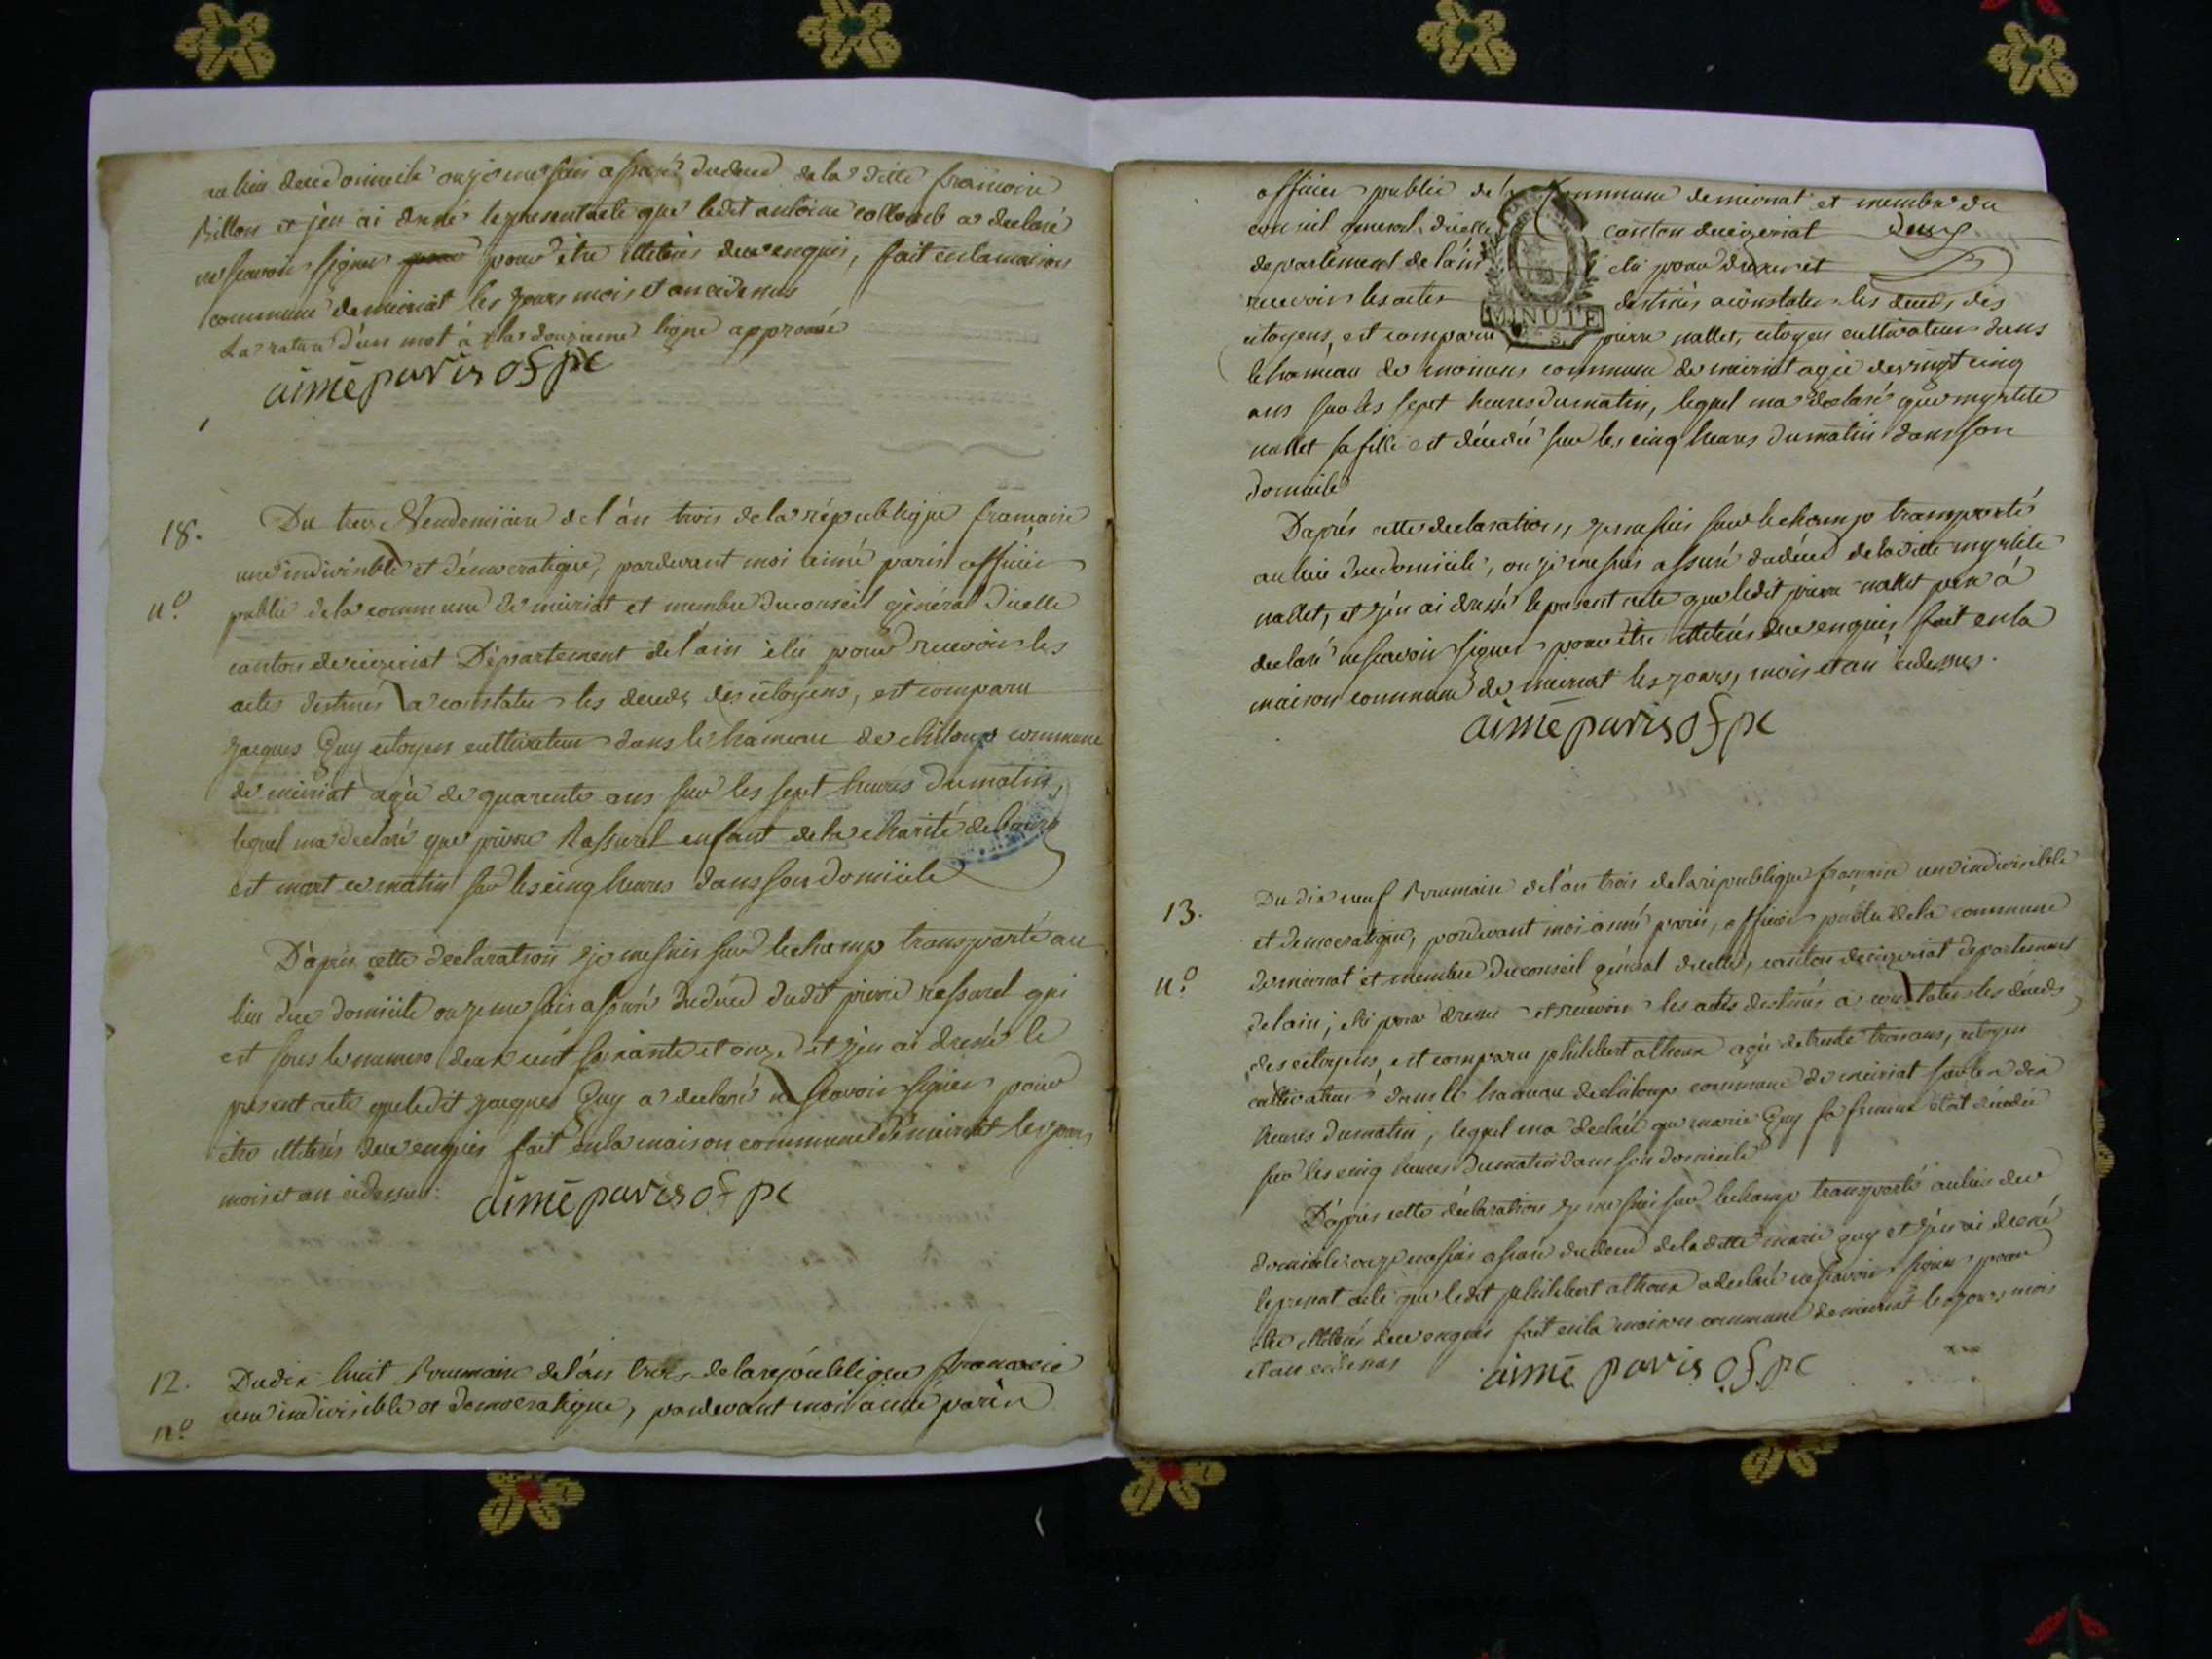 au lieu du domicile ou je me suis assuré du deces de la ditte francoise
Billon et j'en ai dressé le present acte que ledit antoine collomb a declaré
ne scavoir signer pour pour être illiteré de ce enquis, fait en la maison
commune de meiriat les jours mois et an cidessus
La rature d'un mot à la douzieme ligne approuvé
aimé paris of pc
18.
Du treize Vendemiaire de l'an trois de la république francoise
une indivisible et démocratique, pardevant moi aimé paris officier
n.o
public de la commune de meiriat et membre du conseil général d'icelle
canton de ceizeriat Département de l'ain élu pour recevoir les
actes destinés a constater les deceds des citoyens, est comparu
jacques Guy citoyen cultivateur dans le hameau de chiloup commune
de meiriat agé de quarente ans sur les sept heures du matin,
lequel ma declaré que pierre Rassurel enfant de la charité de bourg
est mort ce matin sur les cinq heures dans son domicile
D'après cette declaration je me suis sur le champ transporté au
lieu du domicile ou je me suis assuré du décéd dudit pierre rassurel qui
est sous le numero deux cent soixante et onze et j'en ai dressé le
present acte que ledit jacques Guy a declaré ne scavoir signer pour
être illiterés de ce enquis fait en la maison commune de meiriat les jours,
mois et an cidessus.
aimé paris of pc
12.
Du dix huit Brumaire de l'an trois de la republique francoise
n.o
une indivisible et democratique, pardevant moi aimé paris
officier public de la commune de meiriat et membre du
conseil general d'icelle canton de ceizeriat
département de l'ain élu pour dresser et
recevoir les actes destinés a constater les deceds des
MINUTE
citoyens, est comparu pierre nallet, citoyen cultivateur dans
le hameau de commune de meiriat agé de vingt cinq
ans sur les sept heures du matin, lequel ma declaré que myrtile
nallet sa fille est décédé sur les cinq heures du matin dans son
domicile
D'après cette declaration, je me suis sur le champ transporté
au lieu du domicile, ou je me suis assuré du décéd de la ditte myrtile
nallet, et j'en ai dressé le present acte que ledit pierre nallet pere a
declaré ne scavoir signer pour être illiterés de ce enquis, fait en la
maison commune de meiriat les jours, mois et an cidessus.
aimé paris of pc
13.
Du dix neuf Brumaire de l'an trois de la république francoise une indivisible
et democratique, pardevant moi aimé paris, officier public de la commune
n.o
de meiriat et membre du conseil général d'icelle, canton de ceizeriat departement
de l'ain, élu pour dresser et recevoir les actes destinés a constater les décéds
des citoyens, est comparu philibert agé de trente trois ans, citoyen
cultivateur dans le hameau de chiloup commune de meiriat sur les dix
heures du matin, lequel ma declaré que marie Guy sa femme étoit décédée
sur les cinq heures du matin dans son domicile
D'après cette déclaration je me suis sur le champ transporté au lieu du
domicile ou je me suis assuré du deced de la ditte marie guy et j'en ai dressé
le present acte que ledit philibert a declaré ne scavoir signer pour
être illiterés de ce enquis fait en la maison commune de meiriat les jours mois
et an cidessus
aimé paris of pc